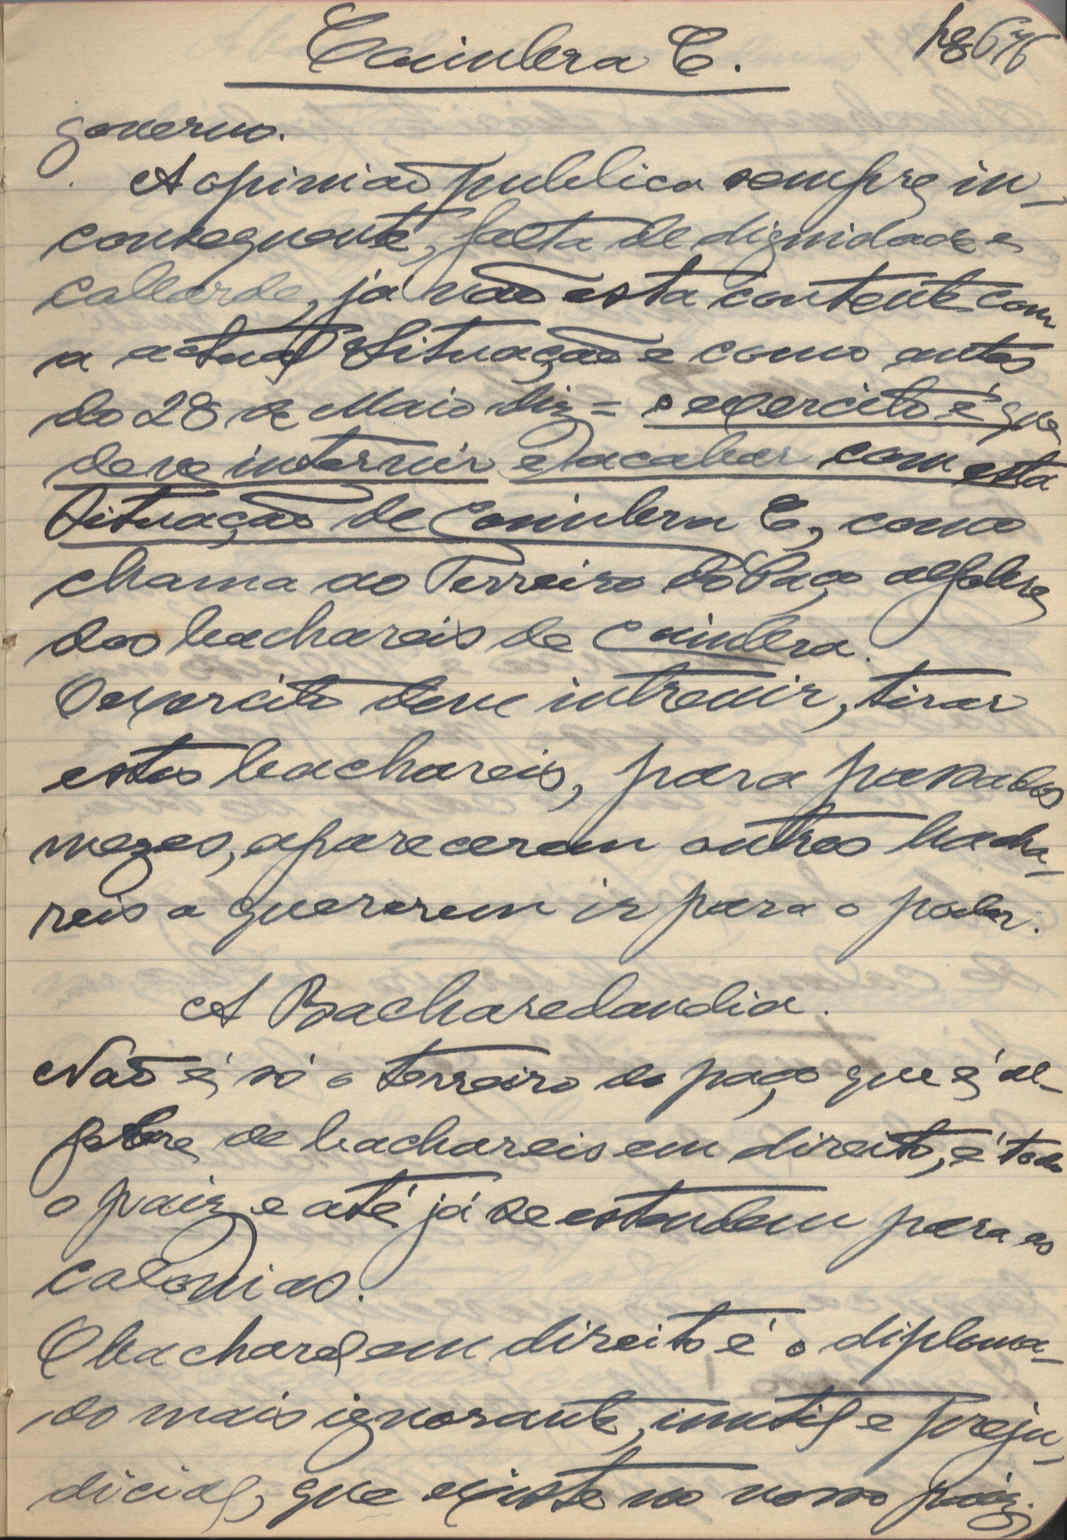 Coimbra C.
pg 676
governo.
A opinião publica sempre in-
consequente, falta de dignidade e
cobarde, já não esta contente com
a actual Situação e como antes
do 28 de Maio diz = o exercito é que
deve intervir e acabar com esta
Situação de Coimbra C, como
chama ao Terreiro do Paço alfobre
dos bachareis de Coimbra.
O exercito deve intrevir, tirar
estes bachareis, para passados
mezes, aparecerem outros bacha-
reis a quererem ir para o poder.
A Bacharelandia.
Não é só o terreiro do paço que é al-
fobre de bachareis em direito, é todo
o paiz e até já se estendem para as
colonias.
O bacharel em direito é o diploma-
do mais ignorante, inutil e preju-
dicial, que existe no nosso paiz.